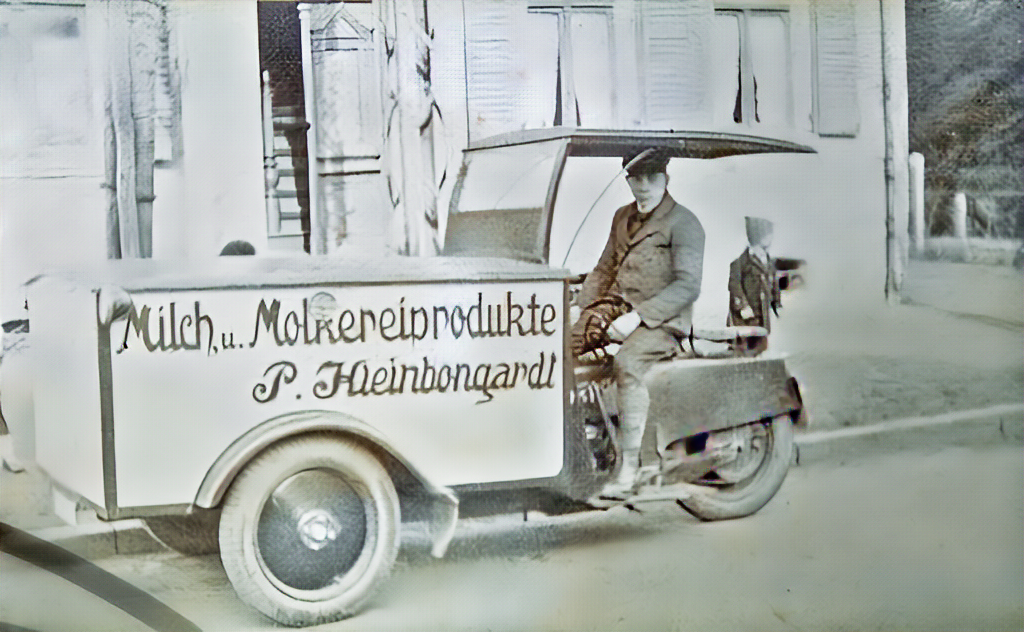 Milch, u. Molkereiprodukte
P. Kleinbongardt